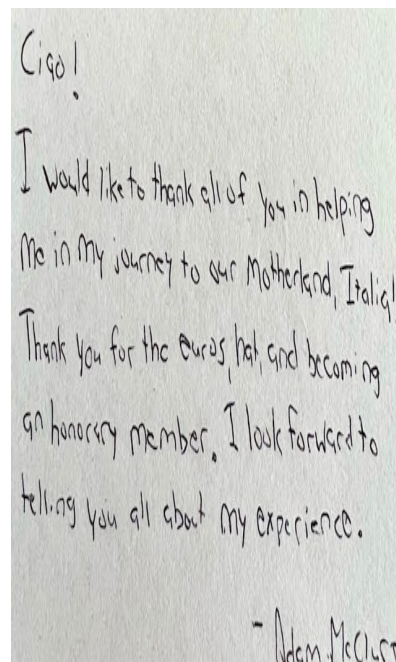 Ciao!
I would like to thank all of you in helping
me in my journey to our Motherland, Italia!
Thank you for the euros, hat, and becoming
an honorary member. I look forward to
telling you all about my experience.
- Adam